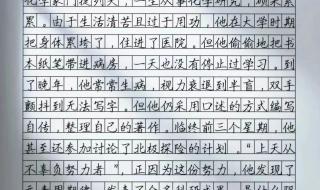 化学家门捷列夫，一生从事化学研究，硕果累
累。由于生活清苦且过于用功，他在大学时期
把身体累垮了，住进了医院。但他偷偷地把书
本纸笔带进病房，一天也没有停止过学习。到
了晚年，他常常生病，视力衰退到半盲，双手
颤抖到无法写字。但他仍采用口述的方式编写
自传，整理自己的著作。临终前三个星期，他
甚至还参加讨论了北极探险的计划。“上天从
不辜负努力者”，正因为这份努力，他发现了